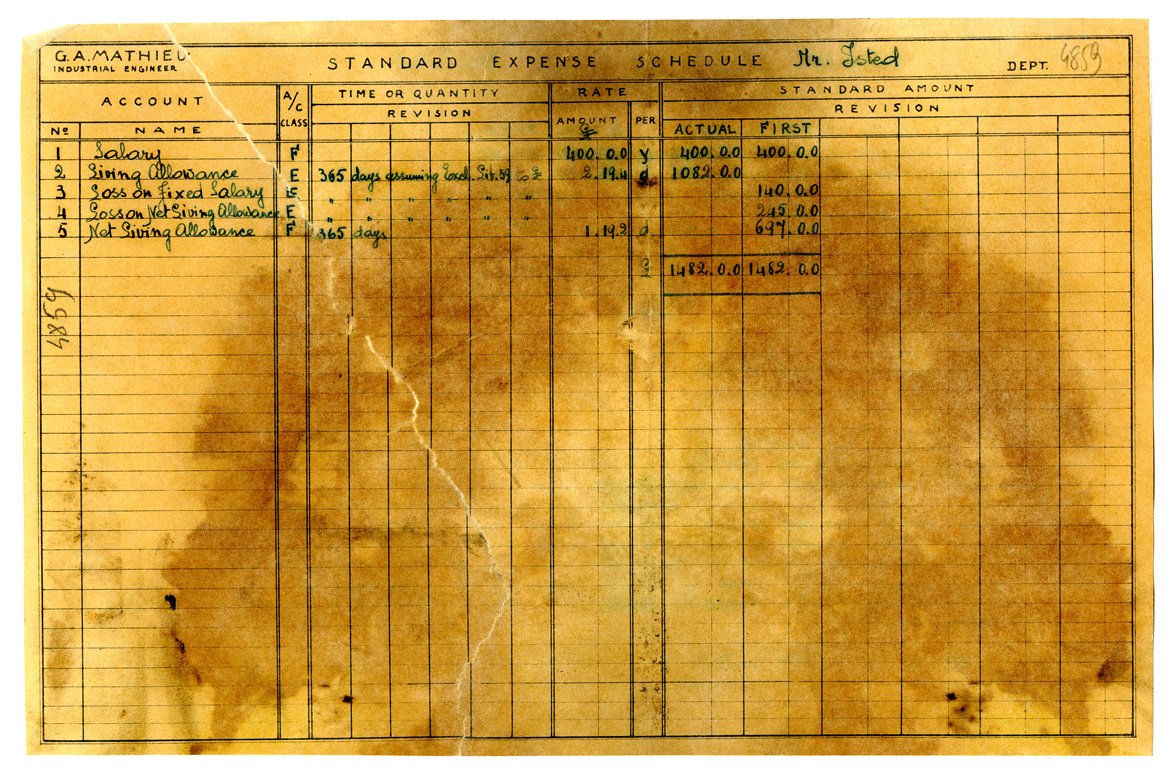 G.A. MATHIEU
INDUSTRIAL ENGINEER
STANDARD EXPENSE SCHEDULE Mr. Isted
DEPT. 4859
ACCOUNT A/C CLASS TIME OR QUANTITY RATE STANDARD AMOUNT
REVISION AMOUNT PER REVISION
Nº NAME £ ACTUAL FIRST
1 Salary F 400.0.0 y 400.0.0 400.0.0
2 Living Allowance E 365 days assuming Excl. 2.19.4 d 1082.0.0
3 Loss on Fixed Salary E " " " " " " 140.0.0
4 Loss on Net Living Allowance E " " " " " " 245.0.0
5 Net Living Allowance F 365 days 1.19.2 d 697.0.0
£ 1482.0.0 1482.0.0
4859